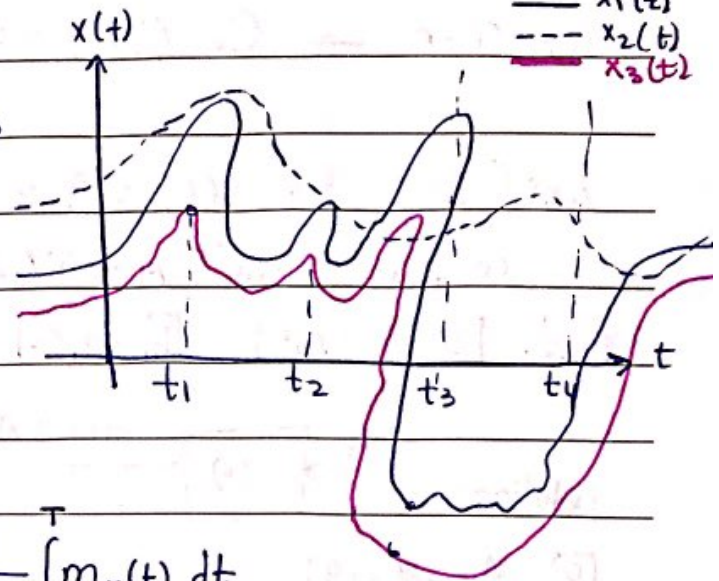 x(t)
x1(t)
x2(t)
x3(t)
t
t1 t2 t3 t4
T
∫ mx(t) dt